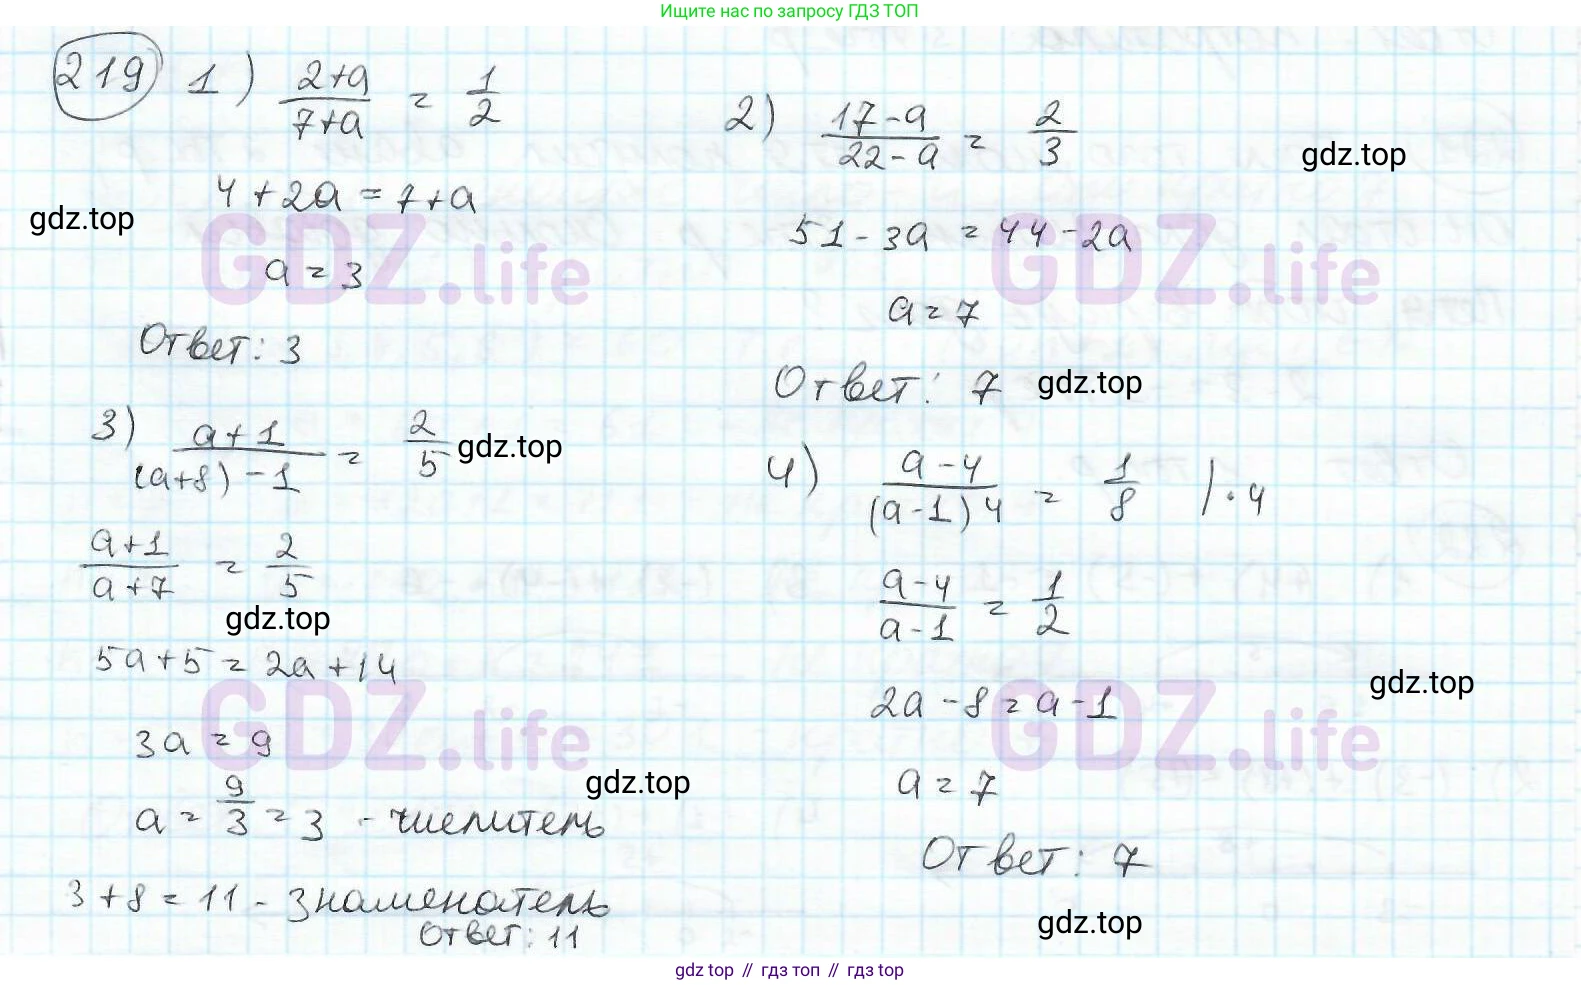 Ищите нас по запросу ГДЗ ТОП
219 1) (2+a)/(7+a) = 1/2
4 + 2a = 7+a
a = 3
Ответ: 3
2) (17-a)/(22-a) = 2/3
51 - 3a = 44 - 2a
a = 7
Ответ: 7
3) (a+1)/((a+8)-1) = 2/5
(a+1)/(a+7) = 2/5
5a+5 = 2a+14
3a = 9
a = 9/3 = 3 - числитель
3+8 = 11 - знаменатель
Ответ: 11
4) (a-4)/((a-1)4) = 1/8 | · 4
(a-4)/(a-1) = 1/2
2a - 8 = a - 1
a = 7
Ответ: 7
gdz.top
gdz.top
gdz.top
gdz.top
gdz.top
gdz.top
gdz.top
gdz.top
GDZ.life
GDZ.life
GDZ.life
GDZ.life
gdz top // гдз топ // гдз top